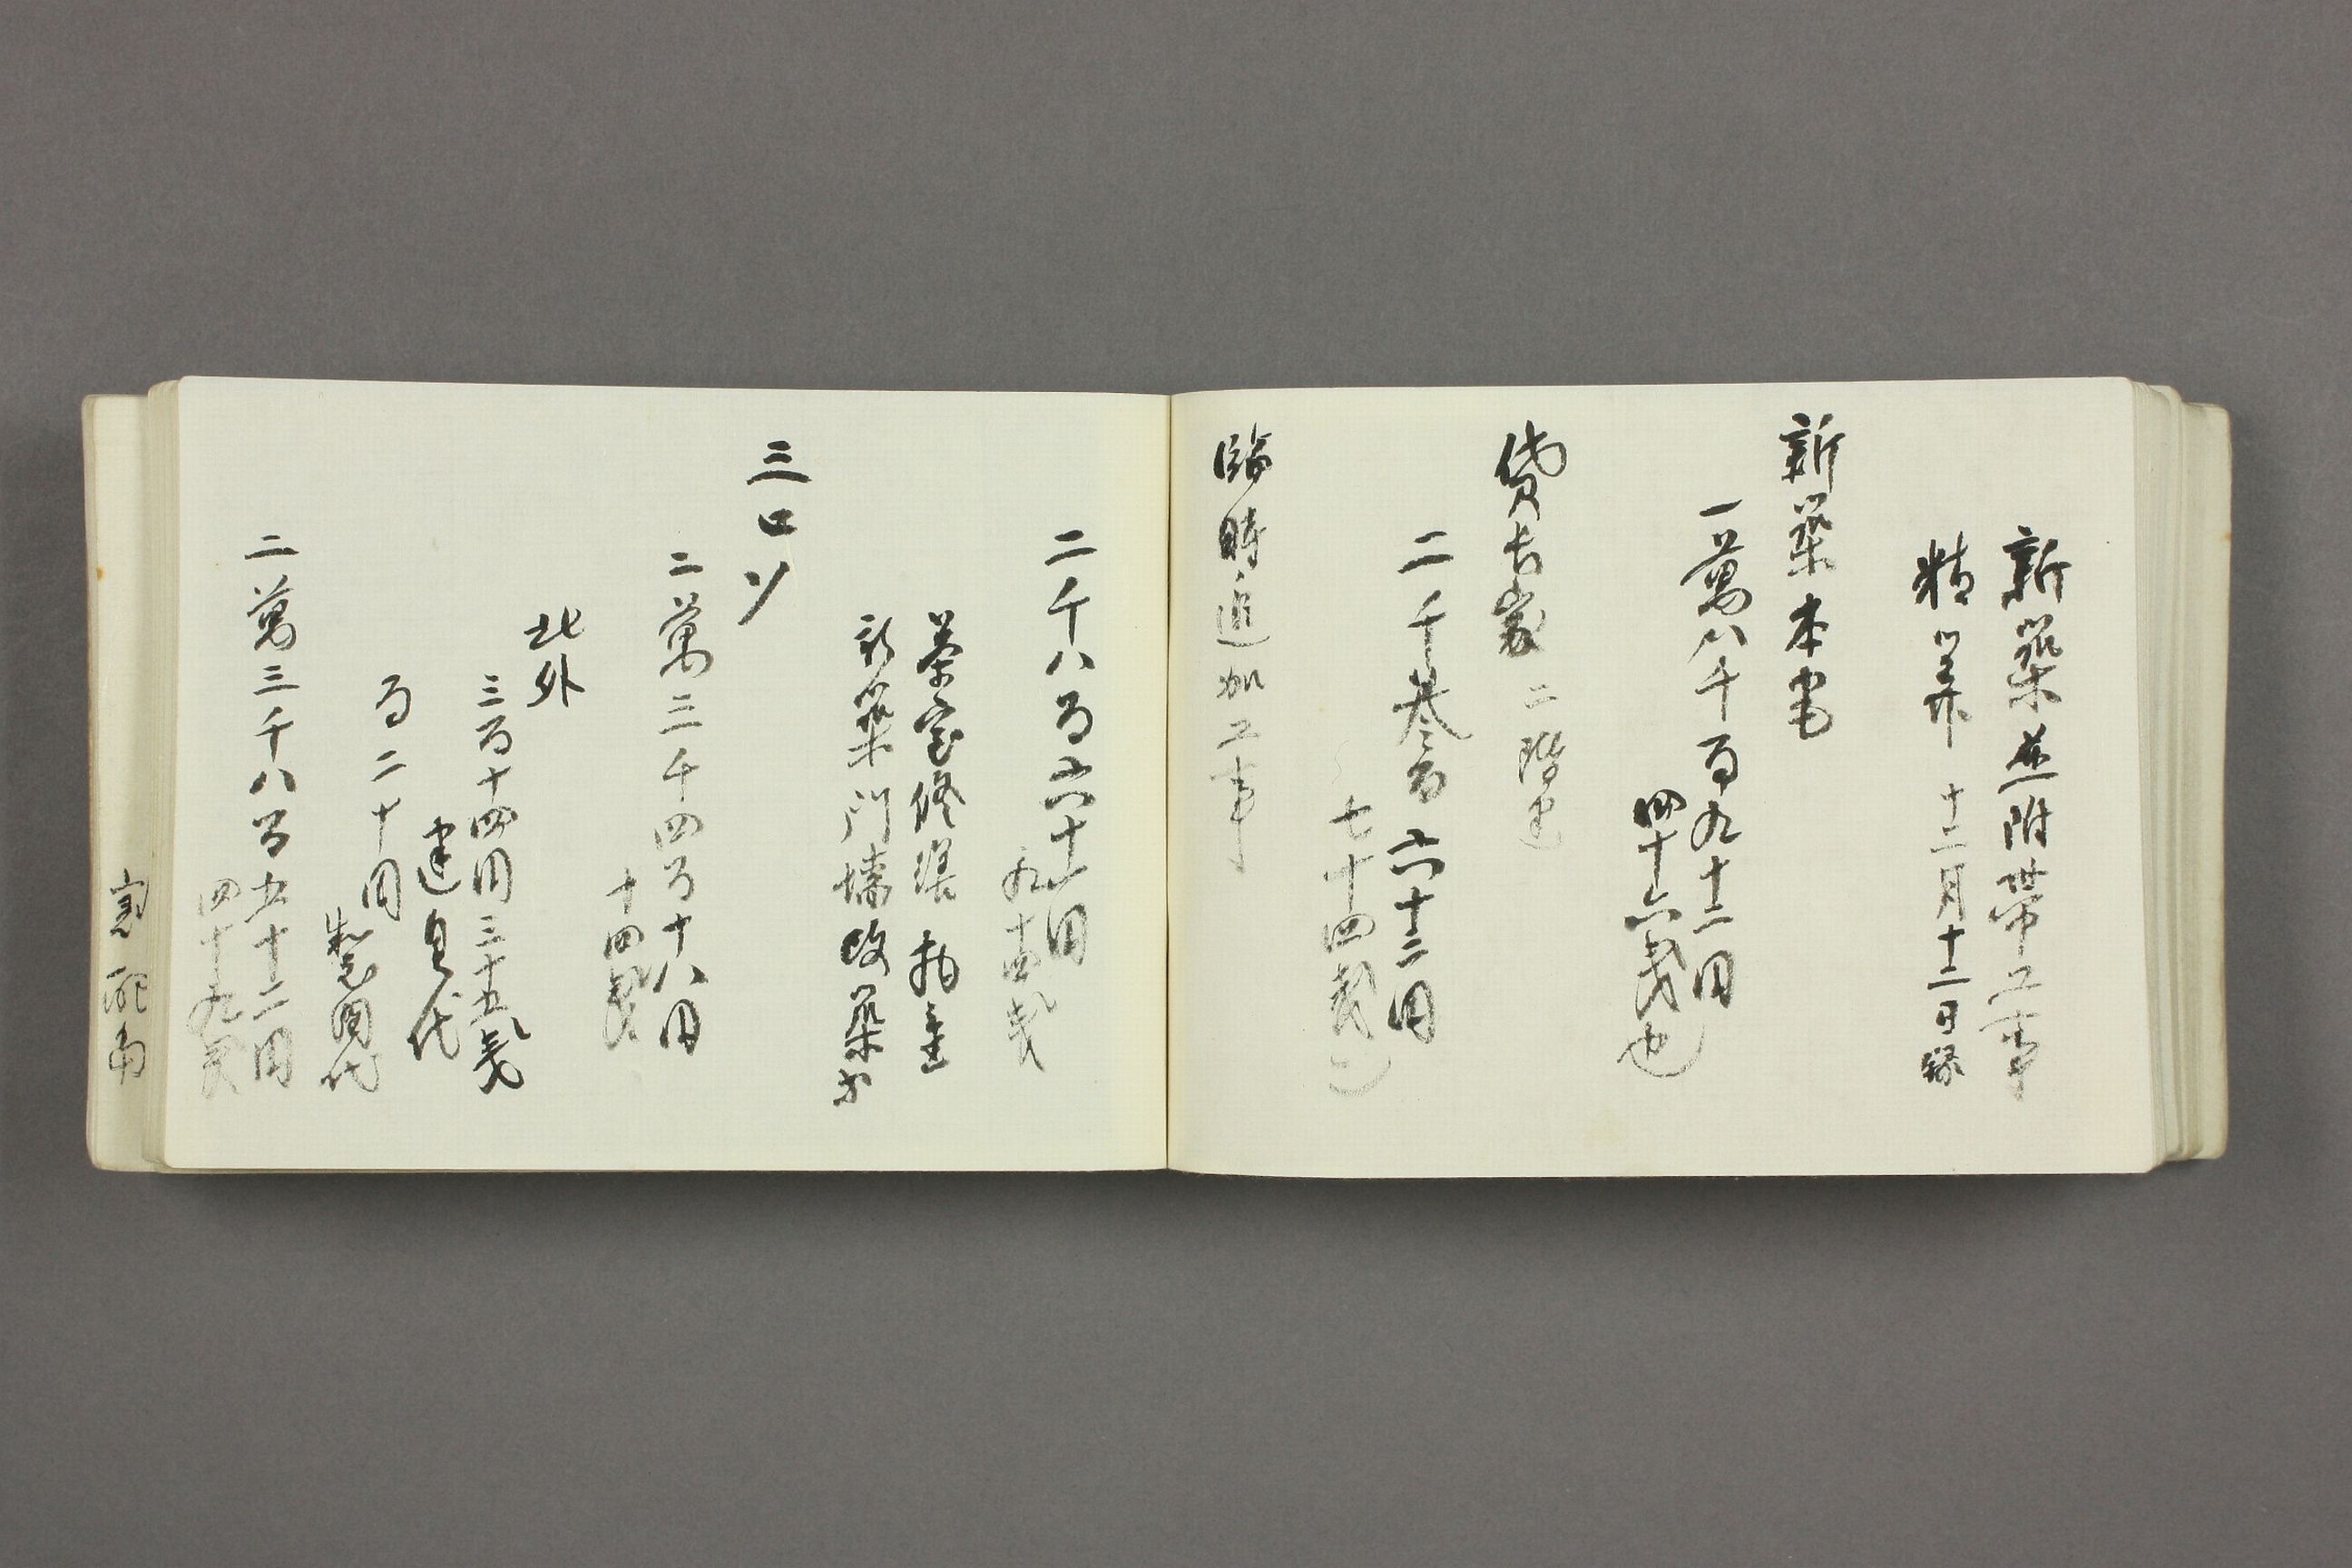 新築並附帯工事
精算 十二月十二日録
新築本宅
一萬八千百九十二円
四十六銭也
貸長家 二階建
二千叁百六十二円
七十四銭也
臨時追加工事
二千八百六十二円
九十四銭
茶室修繕 物置
新築門墻改築等
三口〆
二萬三千四百十八円
十四銭
此外
三百十四円三十五銭
建具代
百二十円
製図代
二萬三千八百五十二円
四十九銭